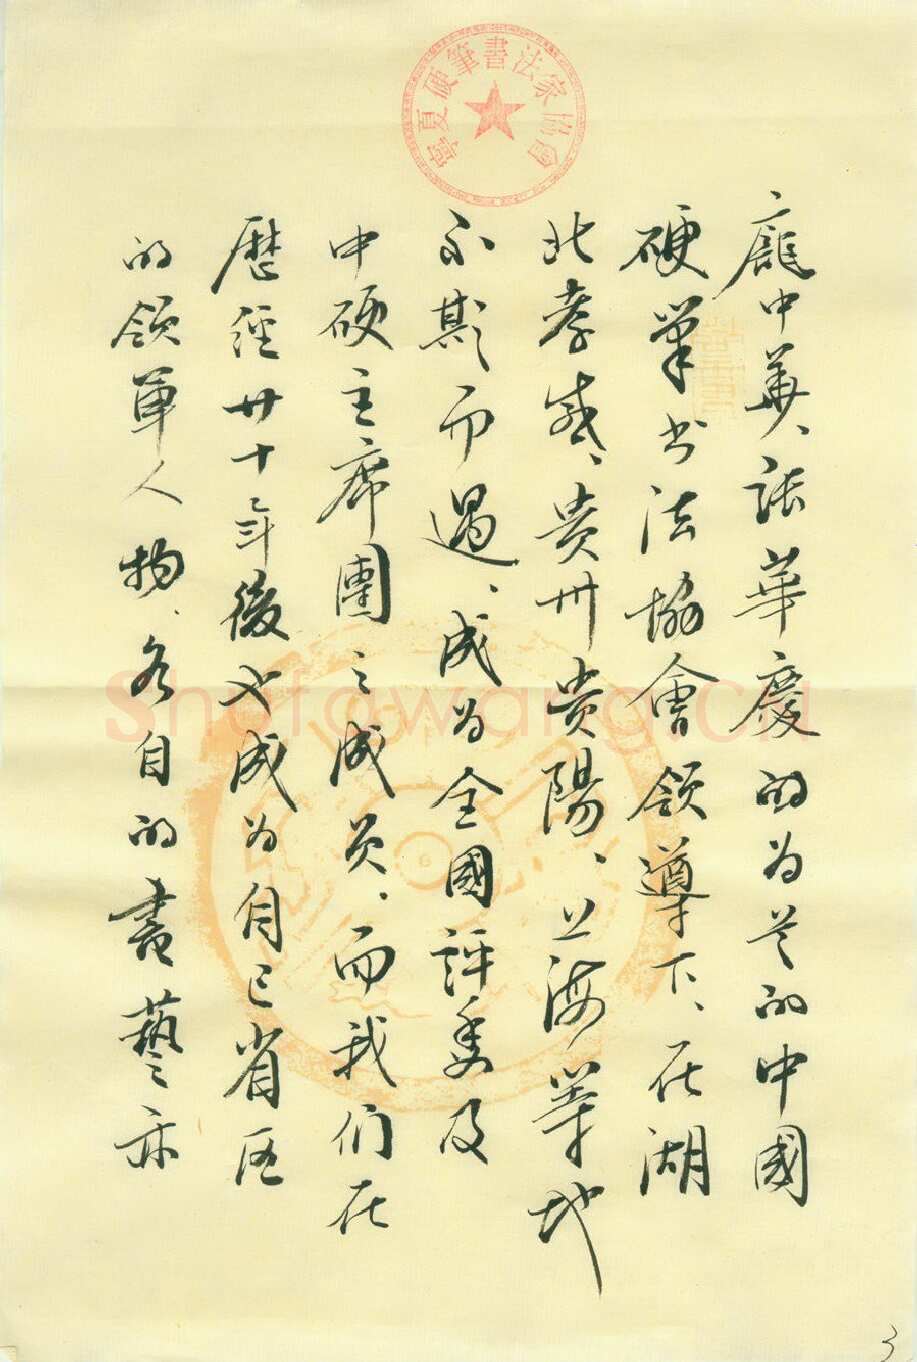 寧夏硬筆書法家協會
龐中華、張華慶的为首的中國
硬筆书法協會領導下、在湖
北孝感、贵州贵陽、上海等地
不期而遇、成为全國評委及
中硬主席團之成员、而我们在
歷經廿十年後也成为自己省区
的領军人物、各自的書藝亦
Shufawang.cn
3